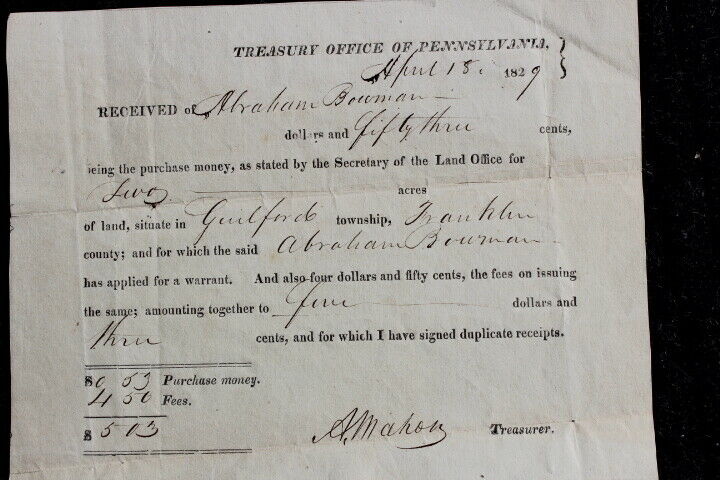 TREASURY OFFICE OF PENNSYLVANIA,
April 18. 1829
RECEIVED of Abraham Bowman
dollars and fifty three cents,
being the purchase money, as stated by the Secretary of the Land Office for
Two acres
of land, situate in Guilford township, Franklin
county; and for which the said Abraham Bowman
has applied for a warrant. And also four dollars and fifty cents, the fees on issuing
the same; amounting together to five dollars and
three cents, and for which I have signed duplicate receipts.
$0 53 Purchase money.
4 50 Fees.
$ 5 03
A. Mahon Treasurer.